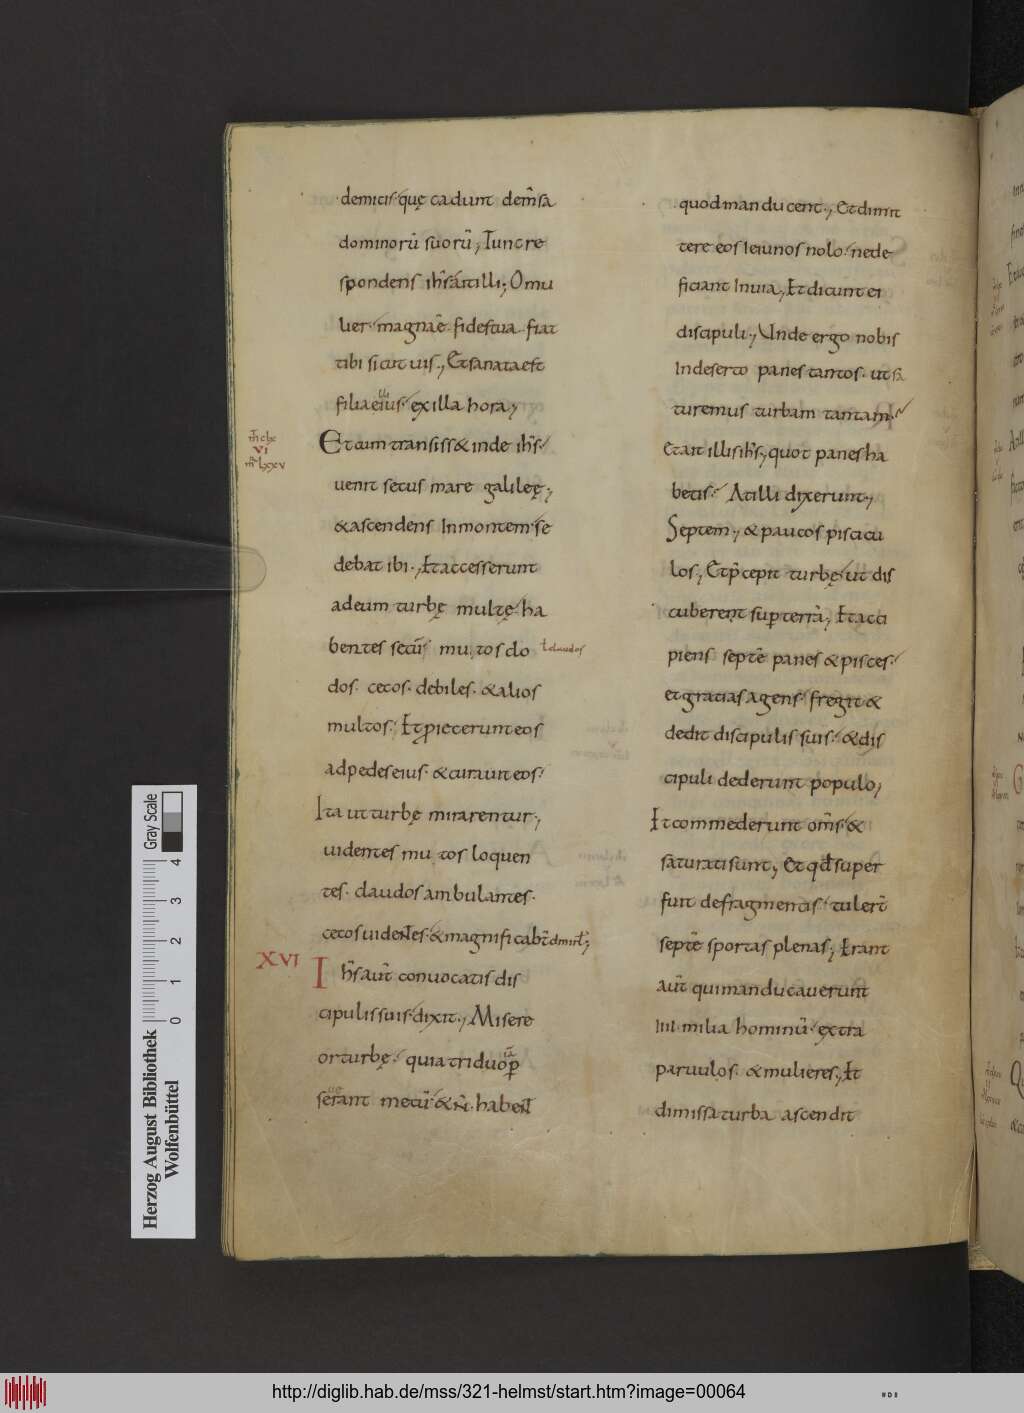 demicis· quę cadunt dem̄sa
dominorū suorū; Tuncre
spondens ihs̄ aitilli; Omu
lier· magnaē fidestua fiat
tibi sicut uis; Etsanataest
filiaeius· exilla hora;
Etcum transiss& inde ihs̄·
m̄ chc
VI
mr̄ lxxv
uenit secus mare galileę;
& ascendens Inmontem· se
debat ibi·; Etaccesserunt
adeum turbę multę· ha
bentes secū mu tos clo ł claudos
dos· cecos· debiles· & alios
multos· Etpiecerunteos
adpedeseius· & curauit eos·
Ita utturbę mirarentur·;
uidentes mu tos loquen
tes· claudos ambulantes·
cecos uidentes· & magnificabt̄ dm̄ isrł;
XVI
Ihs̄ aut̄ conuocatis dis
cipulissuis· dixit; Misere
orturbę· quia triduo p
serant mecū· & n̄· habent
quodmanducent; Etdimit
tere eos Ieiunos nolo· nede
ficiant Inuia; Etdicunt ei
discipuli; Unde ergo nobis
Indeserto panes tantos· utsa
turemus turbam tantam·
Etait illis ihs̄; quot panes ha
betis· Atilli dixerunt;
Septem; & paucos piscicu
los; Etp̄cepit turbę· ut dis
cuberent sup terrā; Etacci
piens septē panes & pisces·
etgratias agens· fregit &
dedit discipulis suis· & dis
cipuli dederunt populo;
Etcommederunt om̄s· &
saturatisunt; Et qd̄super
fuit defragmentis· tulert̄
septē sportas plenas; Erant
aut̄ quimanducauerunt
IIII· milia hominū· extra
paruulos· & mulieres; Et
dimissaturba ascendit
Gray Scale
0 1 2 3 4
Herzog August Bibliothek
Wolfenbüttel
http://diglib.hab.de/mss/321-helmst/start.htm?image=00064